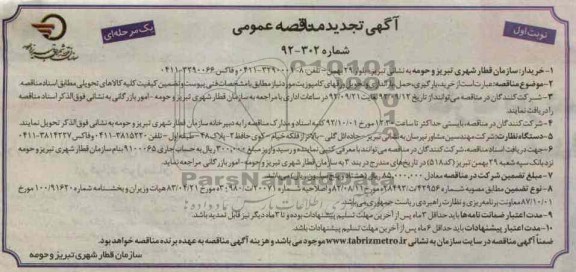 آگهی تجدید مناقصه عمومی
نوبت اول
یک مرحله‌ای
شماره ۳۰۲-۹۲
۱- خریدار: سازمان قطار شهری تبریز و حومه به نشانی تبریز
۲- موضوع مناقصه: عبارتست از خرید، بارگیری، حمل مطابق مشخصات فنی پیوست و تضمین کیفیت کلیه کالاهای تحویلی مطابق اسناد مناقصه.
۳- شرکت کنندگان در مناقصه می‌توانند از تاریخ ۹۲/۰۹/۱۲ لغایت ۹۲/۰۹/۲۱ در ساعات اداری با مراجعه به سازمان قطار شهری تبریز و حومه - امور بازرگانی به نشانی فوق الذکر اسناد مناقصه
را دریافت نمایند.
۴- شرکت کنندگان در مناقصه بایستی حداکثر تا ساعت مورخ ۹۲/۱۰/۰۱ کلیه اسناد و مدارک مناقصه را به دبیرخانه سازمان قطار شهری تبریز و حومه به نشانی فوق الذکر تحویل نمایند.
۵- دستگاه نظارت: شرکت مهندسین مشاور
۶- جهت دریافت اسناد مناقصه، شرکت کنندگان در مناقصه می‌توانند با معرفی کتبی نماینده و رسید واریز مبلغ ۳۰۰,۰۰۰ ریال به حساب جاری ۹۱۰۰۰۶۵ بنام سازمان قطار شهری تبریز و حومه
نزد بانک سپه شعبه ۲۹ بهمن تبریز (کد ۵۱۸) در تاریخ‌های مندرج در بند ۳ به سازمان قطار شهری تبریز و حومه - امور بازرگانی مراجعه نمایند.
۷- مبلغ تضمین شرکت در مناقصه معادل
۸- نوع تضمین مطابق مصوبه شماره هیات وزیران و بخشنامه شماره
معاونت برنامه ریزی و نظارت راهبردی ریاست جمهوری می‌باشد.
۹- مدت اعتبار ضمانت نامه‌ها باید حداقل ۳ ماه پس از آخرین مهلت تسلیم پیشنهادات بوده و تا ۳ ماه دیگر نیز قابل تمدید باشد.
۱۰- مدت اعتبار پیشنهادات باید حداقل ۶ ماه پس از آخرین مهلت تسلیم پیشنهادات باشد.
ضمناً آگهی مناقصه در سایت سازمان به نشانی www.tabrizmetro.ir موجود می باشد و هزینه آگهی مناقصه به عهده برنده مناقصه خواهد بود.
سازمان قطار شهری تبریز و حومه